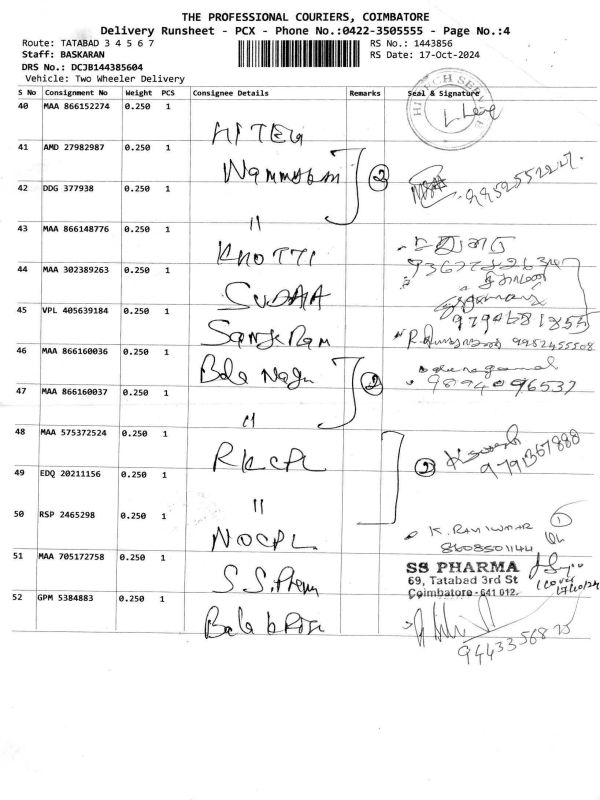 THE PROFESSIONAL COURIERS, COIMBATORE
Delivery Runsheet - PCX - Phone No.:0422-3505555 - Page No.:4
Route: TATABAD 3 4 5 6 7
RS No.: 1443856
Staff: BASKARAN
RS Date: 17-Oct-2024
DRS No.: DCJB144385604
Vehicle: Two Wheeler Delivery
S No Consignment No Weight PCS Consignee Details Remarks Seal & Signature
40 MAA 866152274 0.250 1
HITECH
41 AMD 27982987 0.250 1
2
42 DDG 377938 0.250 1
"
43 MAA 866148776 0.250 1
KHOTTI
44 MAA 302389263 0.250 1
45 VPL 405639184 0.250 1
46 MAA 866160036 0.250 1
Bala
2
9894096537
47 MAA 866160037 0.250 1
"
48 MAA 575372524 0.250 1
RKCPL
2
9791367888
49 EDQ 20211156 0.250 1
"
50 RSP 2465298 0.250 1
NOCPL
K. RAVIKUMAR 1
8608501144
51 MAA 705172758 0.250 1
S.S. Pharm
SS PHARMA
69, Tatabad 3rd St
Coimbatore - 641 012.
1 cover
17/10/24
52 GPM 5384883 0.250 1